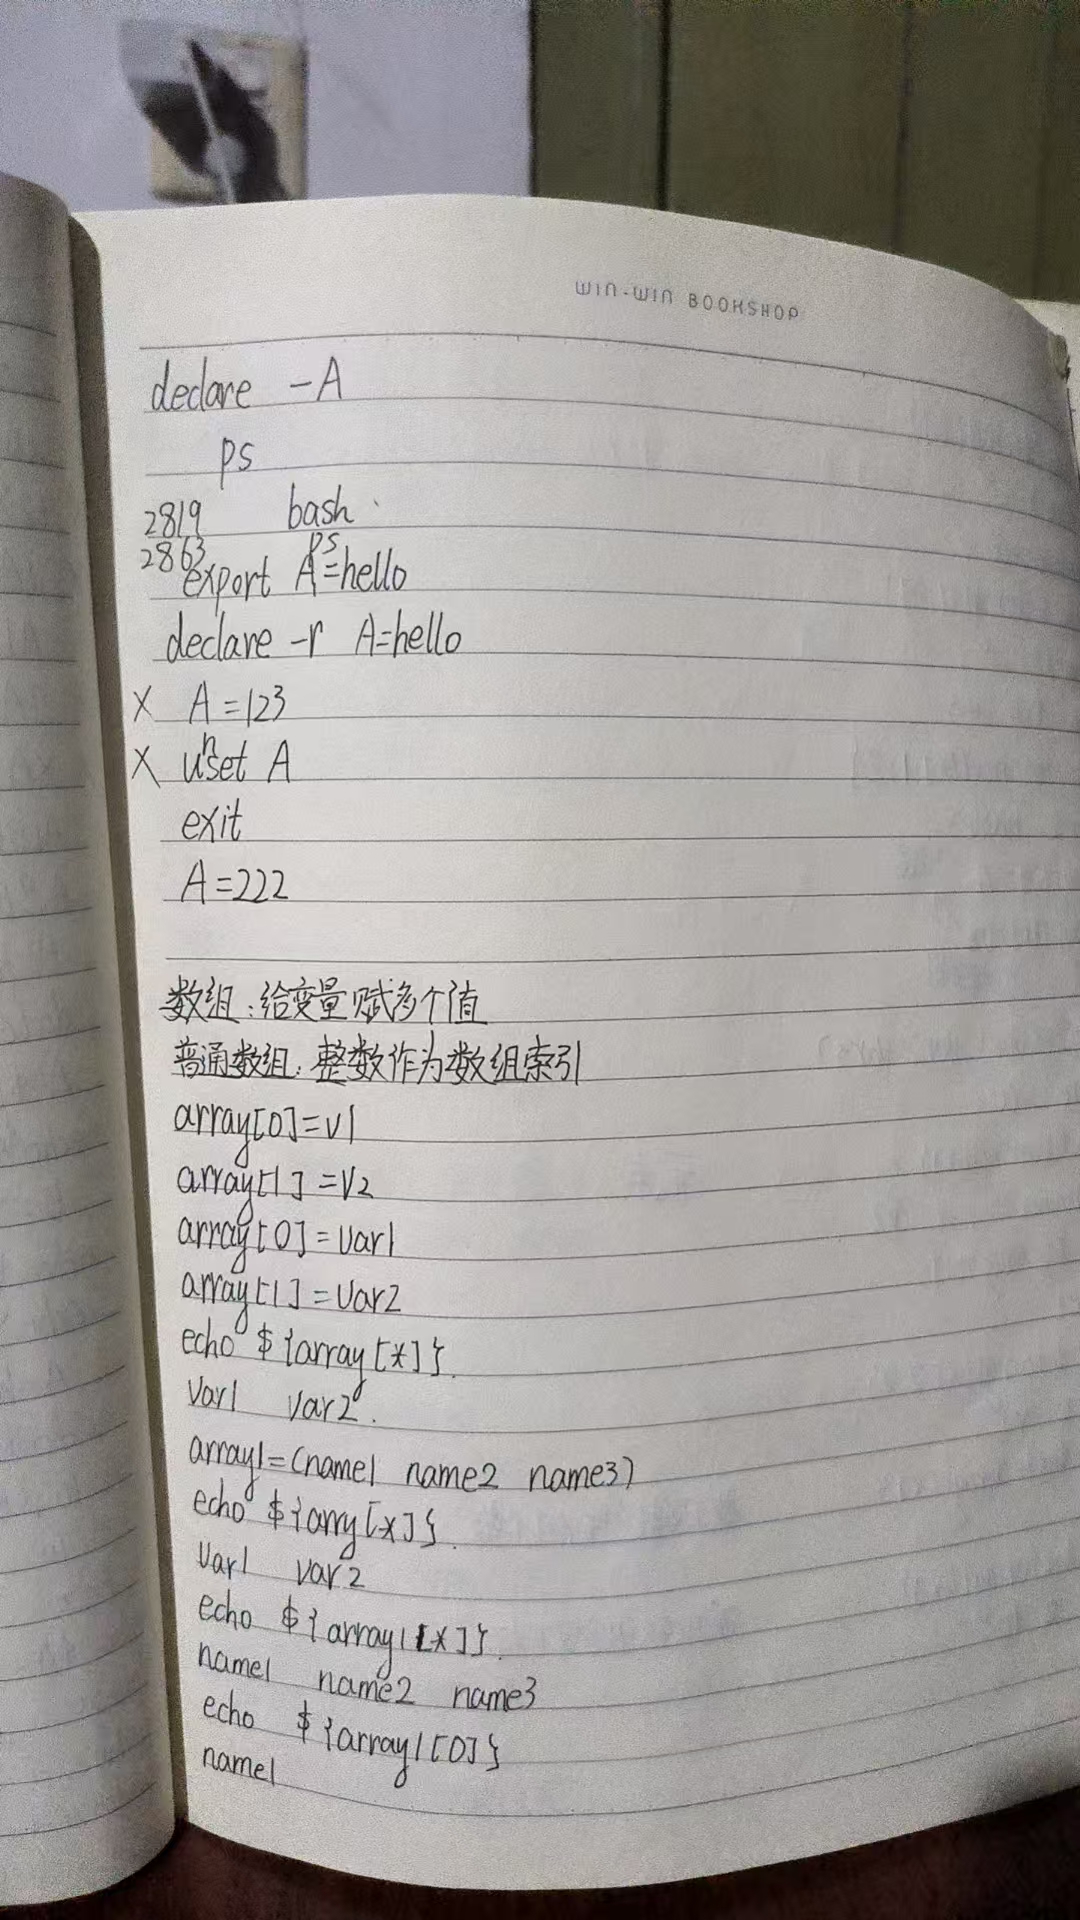 WIN-WIN BOOKSHOP
declare -A
ps
2819 bash
2863 ps
export A=hello
declare -r A=hello
X A=123
X unset A
exit
A=222
数组:给变量赋多个值
普通数组:整数作为数组索引
array[0]=v1
array[1]=v2
array[0]=var1
array[1]=var2
echo ${array[*]}.
var1 var2.
array1=(name1 name2 name3)
echo ${arry[*]}.
var1 var2
echo ${array1[*]}.
name1 name2 name3
echo ${array1[0]}
name1